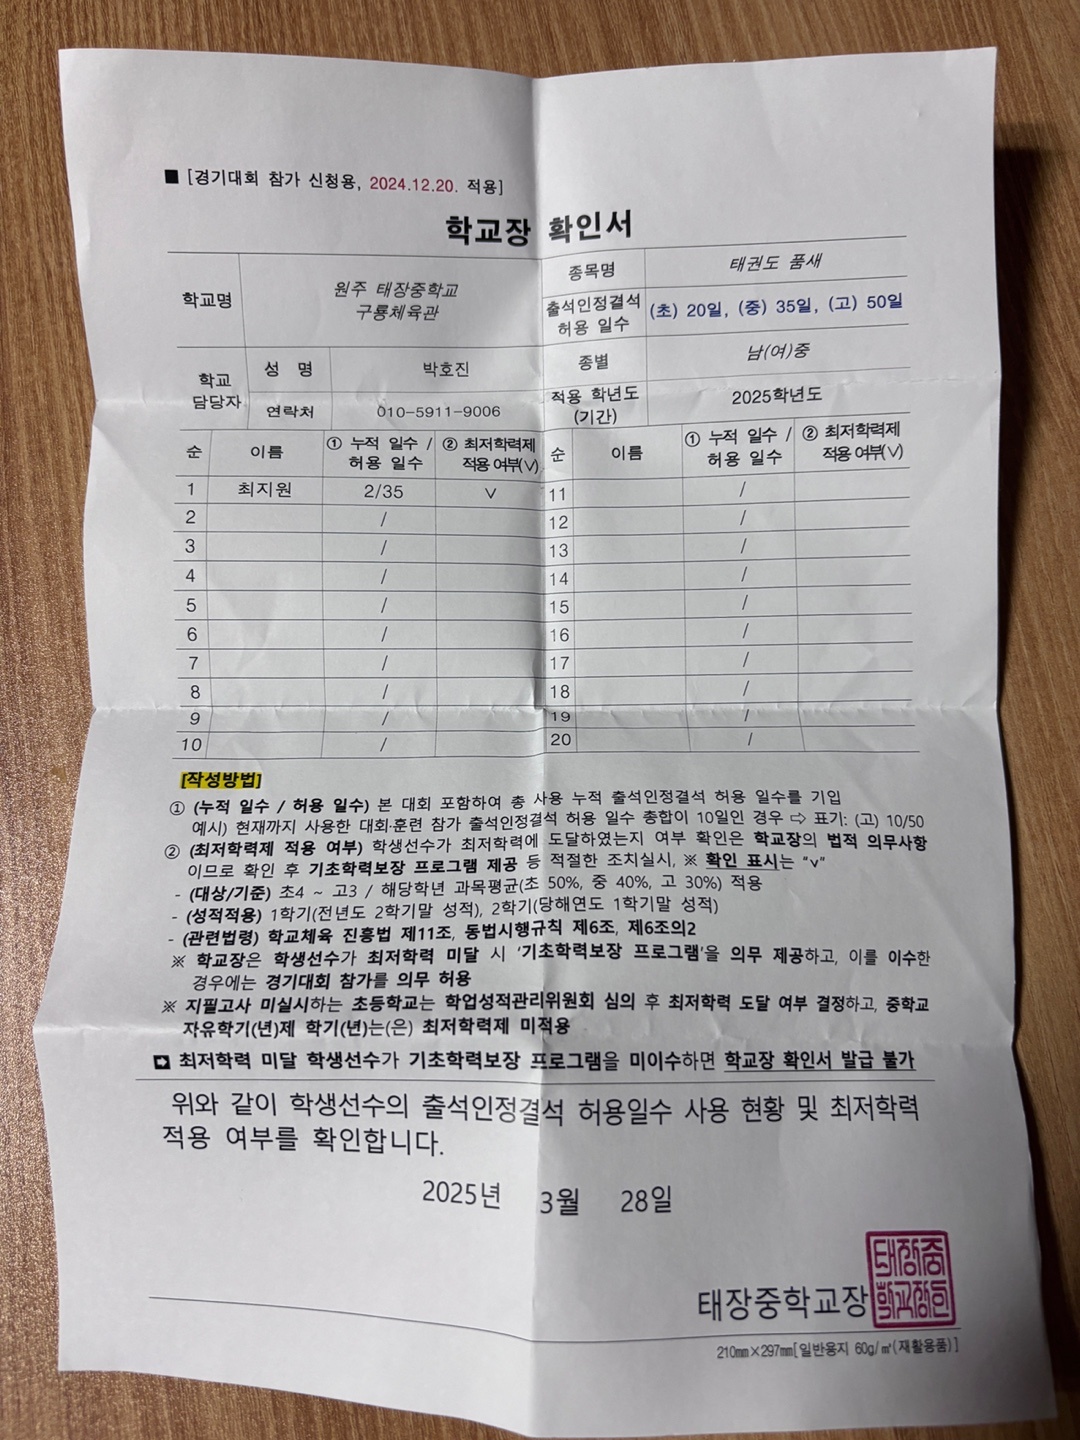 ■ [경기대회 참가 신청용, 2024.12.20. 적용]
학교장 확인서
학교명
원주 태장중학교
구룡체육관
종목명
태권도 품새
출석인정결석
허용 일수
(초) 20일, (중) 35일, (고) 50일
학교
담당자
성 명
박호진
종별
남(여)중
연락처
010-5911-9006
적용 학년도
(기간)
2025학년도
순 이름 ① 누적 일수 / 허용 일수 ② 최저학력제 적용 여부(∨) 순 이름 ① 누적 일수 / 허용 일수 ② 최저학력제 적용 여부(∨)
1 최지원 2/35 ∨ 11 /
2 / 12 /
3 / 13 /
4 / 14 /
5 / 15 /
6 / 16 /
7 / 17 /
8 / 18 /
9 / 19 /
10 / 20 /
[작성방법]
① (누적 일수 / 허용 일수) 본 대회 포함하여 총 사용 누적 출석인정결석 허용 일수를 기입
예시) 현재까지 사용한 대회·훈련 참가 출석인정결석 허용 일수 총합이 10일인 경우 ⇨ 표기: (고) 10/50
② (최저학력제 적용 여부) 학생선수가 최저학력에 도달하였는지 여부 확인은 학교장의 법적 의무사항
이므로 확인 후 기초학력보장 프로그램 제공 등 적절한 조치실시, ※ 확인 표시는 “v”
- (대상/기준) 초4 ~ 고3 / 해당학년 과목평균(초 50%, 중 40%, 고 30%) 적용
- (성적적용) 1학기(전년도 2학기말 성적), 2학기(당해연도 1학기말 성적)
- (관련법령) 학교체육 진흥법 제11조, 동법시행규칙 제6조, 제6조의2
※ 학교장은 학생선수가 최저학력 미달 시 ‘기초학력보장 프로그램’을 의무 제공하고, 이를 이수한
경우에는 경기대회 참가를 의무 허용
※ 지필고사 미실시하는 초등학교는 학업성적관리위원회 심의 후 최저학력 도달 여부 결정하고, 중학교
자유학기(년)제 학기(년)는(은) 최저학력제 미적용
➡ 최저학력 미달 학생선수가 기초학력보장 프로그램을 미이수하면 학교장 확인서 발급 불가
위와 같이 학생선수의 출석인정결석 허용일수 사용 현황 및 최저학력
적용 여부를 확인합니다.
2025년 3월 28일
태장중학교장
태장중
학교장인
210㎜×297㎜[일반용지 60g/㎡(재활용품)]